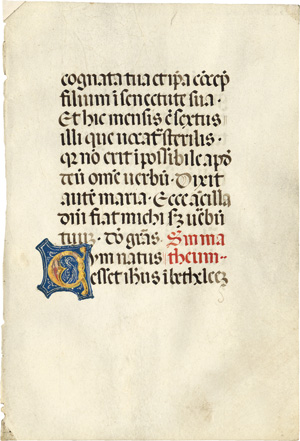 cognata tua et ip̄a cōcep̄
filium ī senectute sua ·
Et hic mensis ē sextus
illi que uocat̄ sterilis ·
qr nō erit īpossibile apd̄
deū om̄e uerbū · Dixit
autē maria · Ecce ācilla
dn̄i fiat michi sꝫ uerbū
tuū · Dō gr̄as · Sm̄ ma
Cum natus theum ·
esset ihūs ī bethleeꝫ